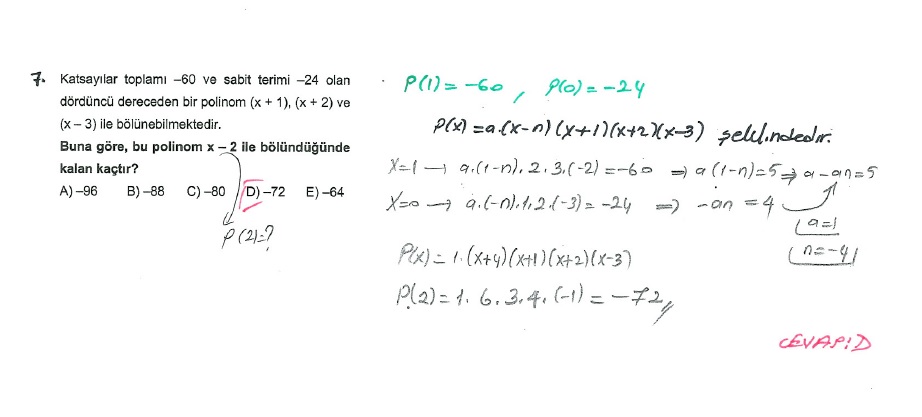 7. Katsayılar toplamı –60 ve sabit terimi –24 olan
dördüncü dereceden bir polinom (x + 1), (x + 2) ve
(x – 3) ile bölünebilmektedir.
Buna göre, bu polinom x – 2 ile bölündüğünde
kalan kaçtır?
A) –96 B) –88 C) –80 D) –72 E) –64
P(2)=?
P(1) = -60 , P(0) = -24
P(x) = a.(x-n)(x+1)(x+2)(x-3) şeklindedir.
x=1 → a.(1-n).2.3.(-2) = -60 ⇒ a(1-n)=5 ⇒ a-an=5
x=0 → a.(-n).1.2.(-3) = -24 ⇒ -an = 4
a=1
n=-4
P(x) = 1.(x+4)(x+1)(x+2)(x-3)
P(2) = 1.6.3.4.(-1) = -72,,
CEVAP:D